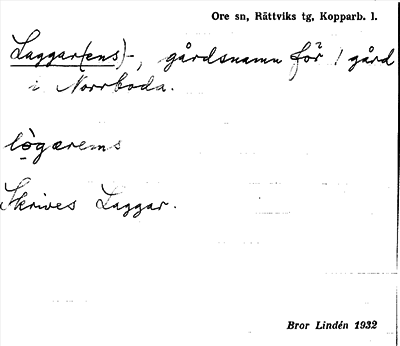 Ore sn, Rättviks tg, Kopparb. l.
Laggar(ens)-, gårdsnamn för 1 gård
i Norrboda.
lògærems
Skrives Laggar.
Bror Lindén 1932